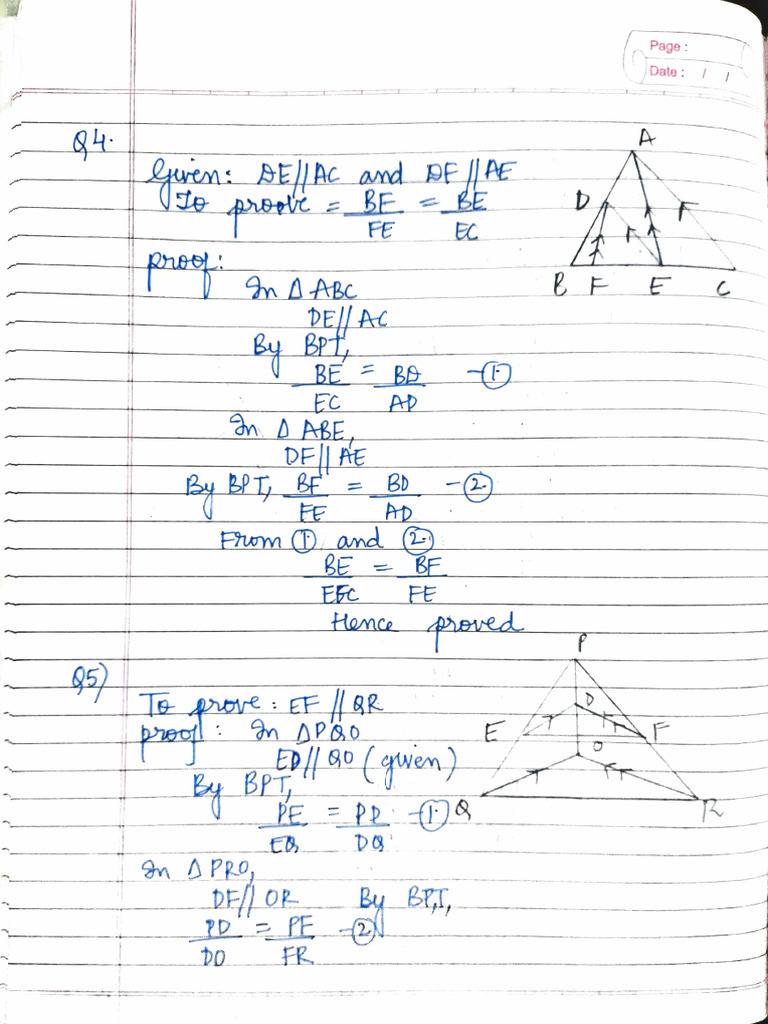 Page :
Date : / /
Q4.
Given: DE//AC and DF//AE
To proove = BF/FE = BE/EC
A
D
F
B F E C
proof:
In Δ ABC
DE//AC
By BPT,
BE/EC = BD/AD -①
In Δ ABE,
DF//AE
By BPT, BF/FE = BD/AD -②
From ① and ②
BE/EC = BF/FE
Hence proved
Q5)
To prove: EF // QR
proof: In ΔPQO
ED//QO (given)
By BPT,
PE/EQ = PD/DQ -①
P
D
E F
O
Q R
In Δ PRO,
DF// OR By BPT,
PD/DO = PF/FR -②